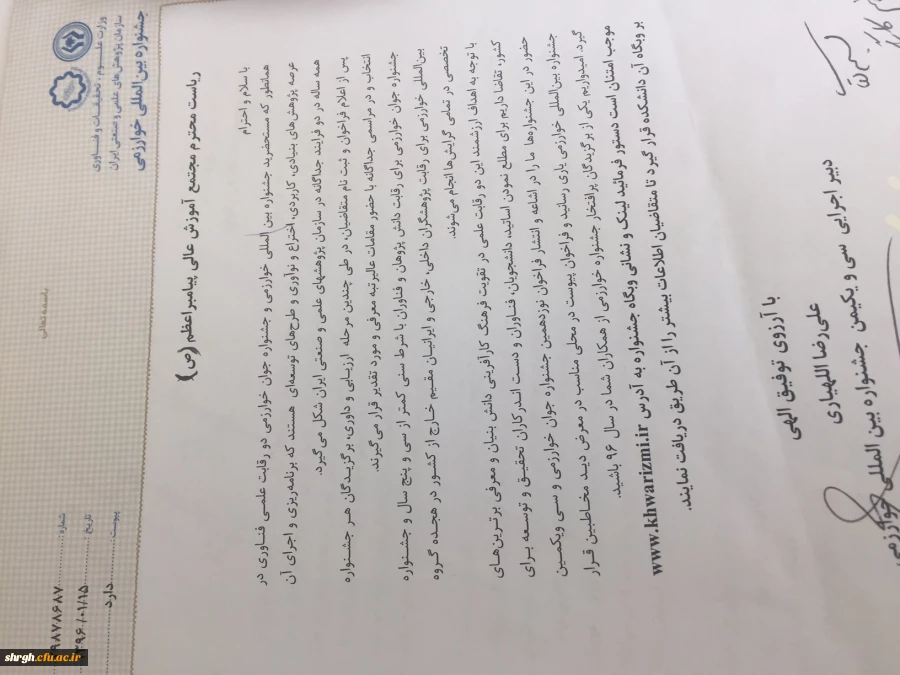 باسمه تعالی
وزارت علوم، تحقیقات و فناوری
سازمان پژوهش‌های علمی و صنعتی ایران
جشنواره بین‌المللی خوارزمی
شماره:
۹۸۷۸۶۸۷
تاریخ:
۳۹۶/۰۱/۱۵
پیوست:
دارد
ریاست محترم مجتمع آموزش عالی پیامبراعظم (ص)
با سلام و احترام
همانطور که مستحضرید جشنواره بین المللی خوارزمی و جشنواره جوان خوارزمی دو رقابت علمی فناوری در
عرصه پژوهش‌های بنیادی، کاربردی، اختراع و نوآوری و طرح‌های توسعه‌ای هستند که برنامه‌ریزی و اجرای آن
همه ساله در دو فرایند جداگانه در سازمان پژوهشهای علمی و صنعتی ایران شکل می‌گیرد.
پس از اعلام فراخوان و ثبت نام متقاضیان، در طی چندین مرحله ارزیابی و داوری، برگزیدگان هر جشنواره
انتخاب و در مراسمی جداگانه با حضور مقامات عالیرتبه معرفی و مورد تقدیر قرار می‌گیرند.
جشنواره جوان خوارزمی برای رقابت دانش پژوهان و فناوران با شرط سنی کمتر از سی و پنج سال و جشنواره
بین‌المللی خوارزمی برای رقابت پژوهشگران داخلی، خارجی و ایرانیان مقیم خارج از کشور در هجده گروه
تخصصی در تمامی گرایش‌ها انجام می‌شوند.
با توجه به اهداف ارزشمند این دو رقابت علمی در تقویت فرهنگ کارآفرینی دانش بنیان و معرفی برترین‌های
کشور، تقاضا داریم برای مطلع نمودن اساتید، دانشجویان، فناوران و دست اندرکاران تحقیق و توسعه برای
حضور در این جشنواره‌ها ما را در اشاعه و انتشار فراخوان نوزدهمین جشنواره جوان خوارزمی و سی ویکمین
جشنواره بین‌المللی خوارزمی یاری رسانید و فراخوان پیوست در محلی مناسب در معرض دید مخاطبین قرار
گیرد. امیدواریم یکی از برگزیدگان پرافتخار جشنواره خوارزمی از همکاران شما در سال ۹۶ باشید.
موجب امتنان است دستور فرمائید لینک و نشانی وبگاه جشنواره به آدرس www.khwarizmi.ir
بر وبگاه آن دانشکده قرار گیرد تا متقاضیان اطلاعات بیشتر را از آن طریق دریافت نمایند.
با آرزوی توفیق الهی
علی‌رضا اللهیاری
دبیر اجرایی سی و یکیمن جشنواره بین المللی خوارزمی
shrgh.cfu.ac.ir